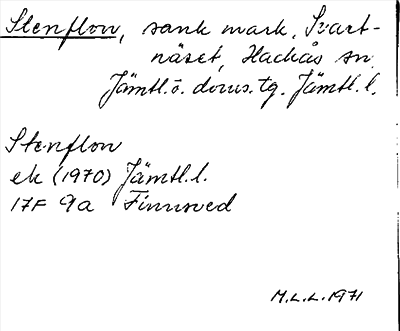 Stenflon, sank mark, Svart-
näset, Hackås sn.
Jämtl. ö. doms. tg. Jämtl. l.
Stenflon
ek (1970) Jämtl. l.
17F 9a Finnsved
M.L.L. 1971